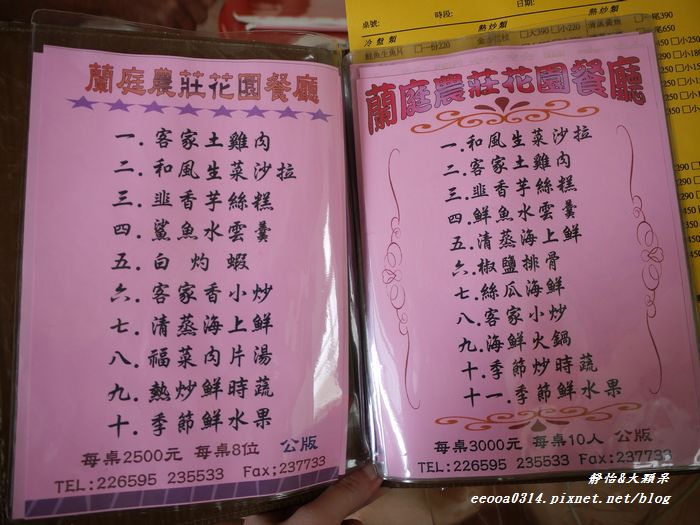 蘭庭農莊花園餐廳
一.客家土雞肉
二.和風生菜沙拉
三.韭香芋絲糕
四.鯊魚水雲羹
五.白灼蝦
六.客家香小炒
七.清蒸海上鮮
八.福菜肉片湯
九.熱炒鮮時蔬
十.季節鮮水果
每桌2500元 每桌8位 公版
TEL:226595 235533 Fax:237733
蘭庭農莊花園餐廳
一.和風生菜沙拉
二.客家土雞肉
三.韭香芋絲糕
四.鮮魚水雲羹
五.清蒸海上鮮
六.椒鹽排骨
七.絲瓜海鮮
八.客家小炒
九.海鮮火鍋
十.季節炒時蔬
十一.季節鮮水果
每桌3000元 每桌10人 公版
TEL:226595 235533 Fax:237733
桌號: 時段: 日期:
冷盤類 熱炒類 熱炒類
鮭魚生魚片 □一份220
靜怡&大顆呆
eeooa0314.pixnet.net/blog